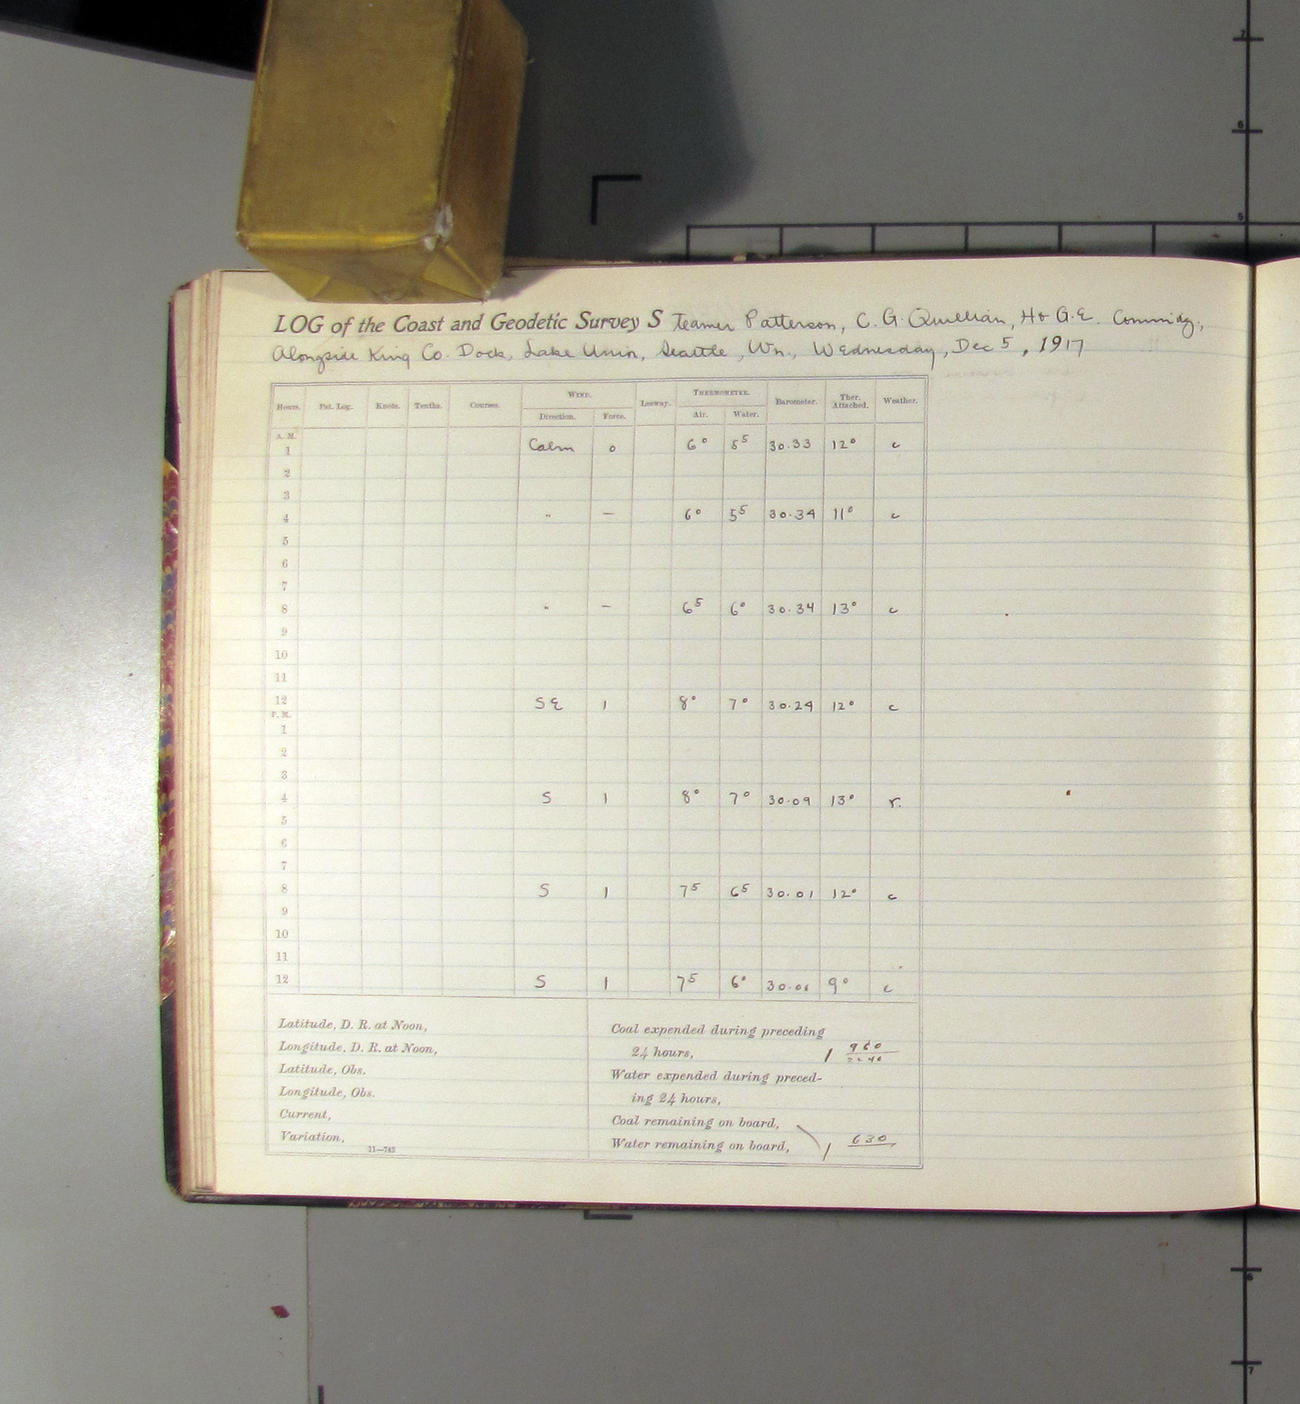 LOG of the Coast and Geodetic Survey Steamer Patterson, C. G. Quillian, H & G.E. Commndg.,
Alongside King Co. Dock, Lake Union, Seattle, Wn., Wednesday, Dec 5, 1917
Hours. Pat. Log. Knots. Tenths. Courses. WIND. Leeway. THERMOMETER. Barometer. Ther. Attached. Weather.
Direction. Force. Air. Water.
A. M.
1 Calm 0 6° 5⁵ 30.33 12° c
2
3
4 " — 6° 5⁵ 30.34 11° c
5
6
7
8 " — 6⁵ 6° 30.34 13° c
9
10
11
12 SE 1 8° 7° 30.24 12° c
P. M.
1
2
3
4 S 1 8° 7° 30.09 13° r.
5
6
7
8 S 1 7⁵ 6⁵ 30.01 12° c
9
10
11
12 S 1 7⁵ 6° 9° c
Latitude, D. R. at Noon,
Longitude, D. R. at Noon,
Latitude, Obs.
Longitude, Obs.
Current,
Variation,
11—743
Coal expended during preceding
24 hours, 1 960/2240
Water expended during preced-
ing 24 hours,
Coal remaining on board,
Water remaining on board, 1 630
7
6
5
6
7